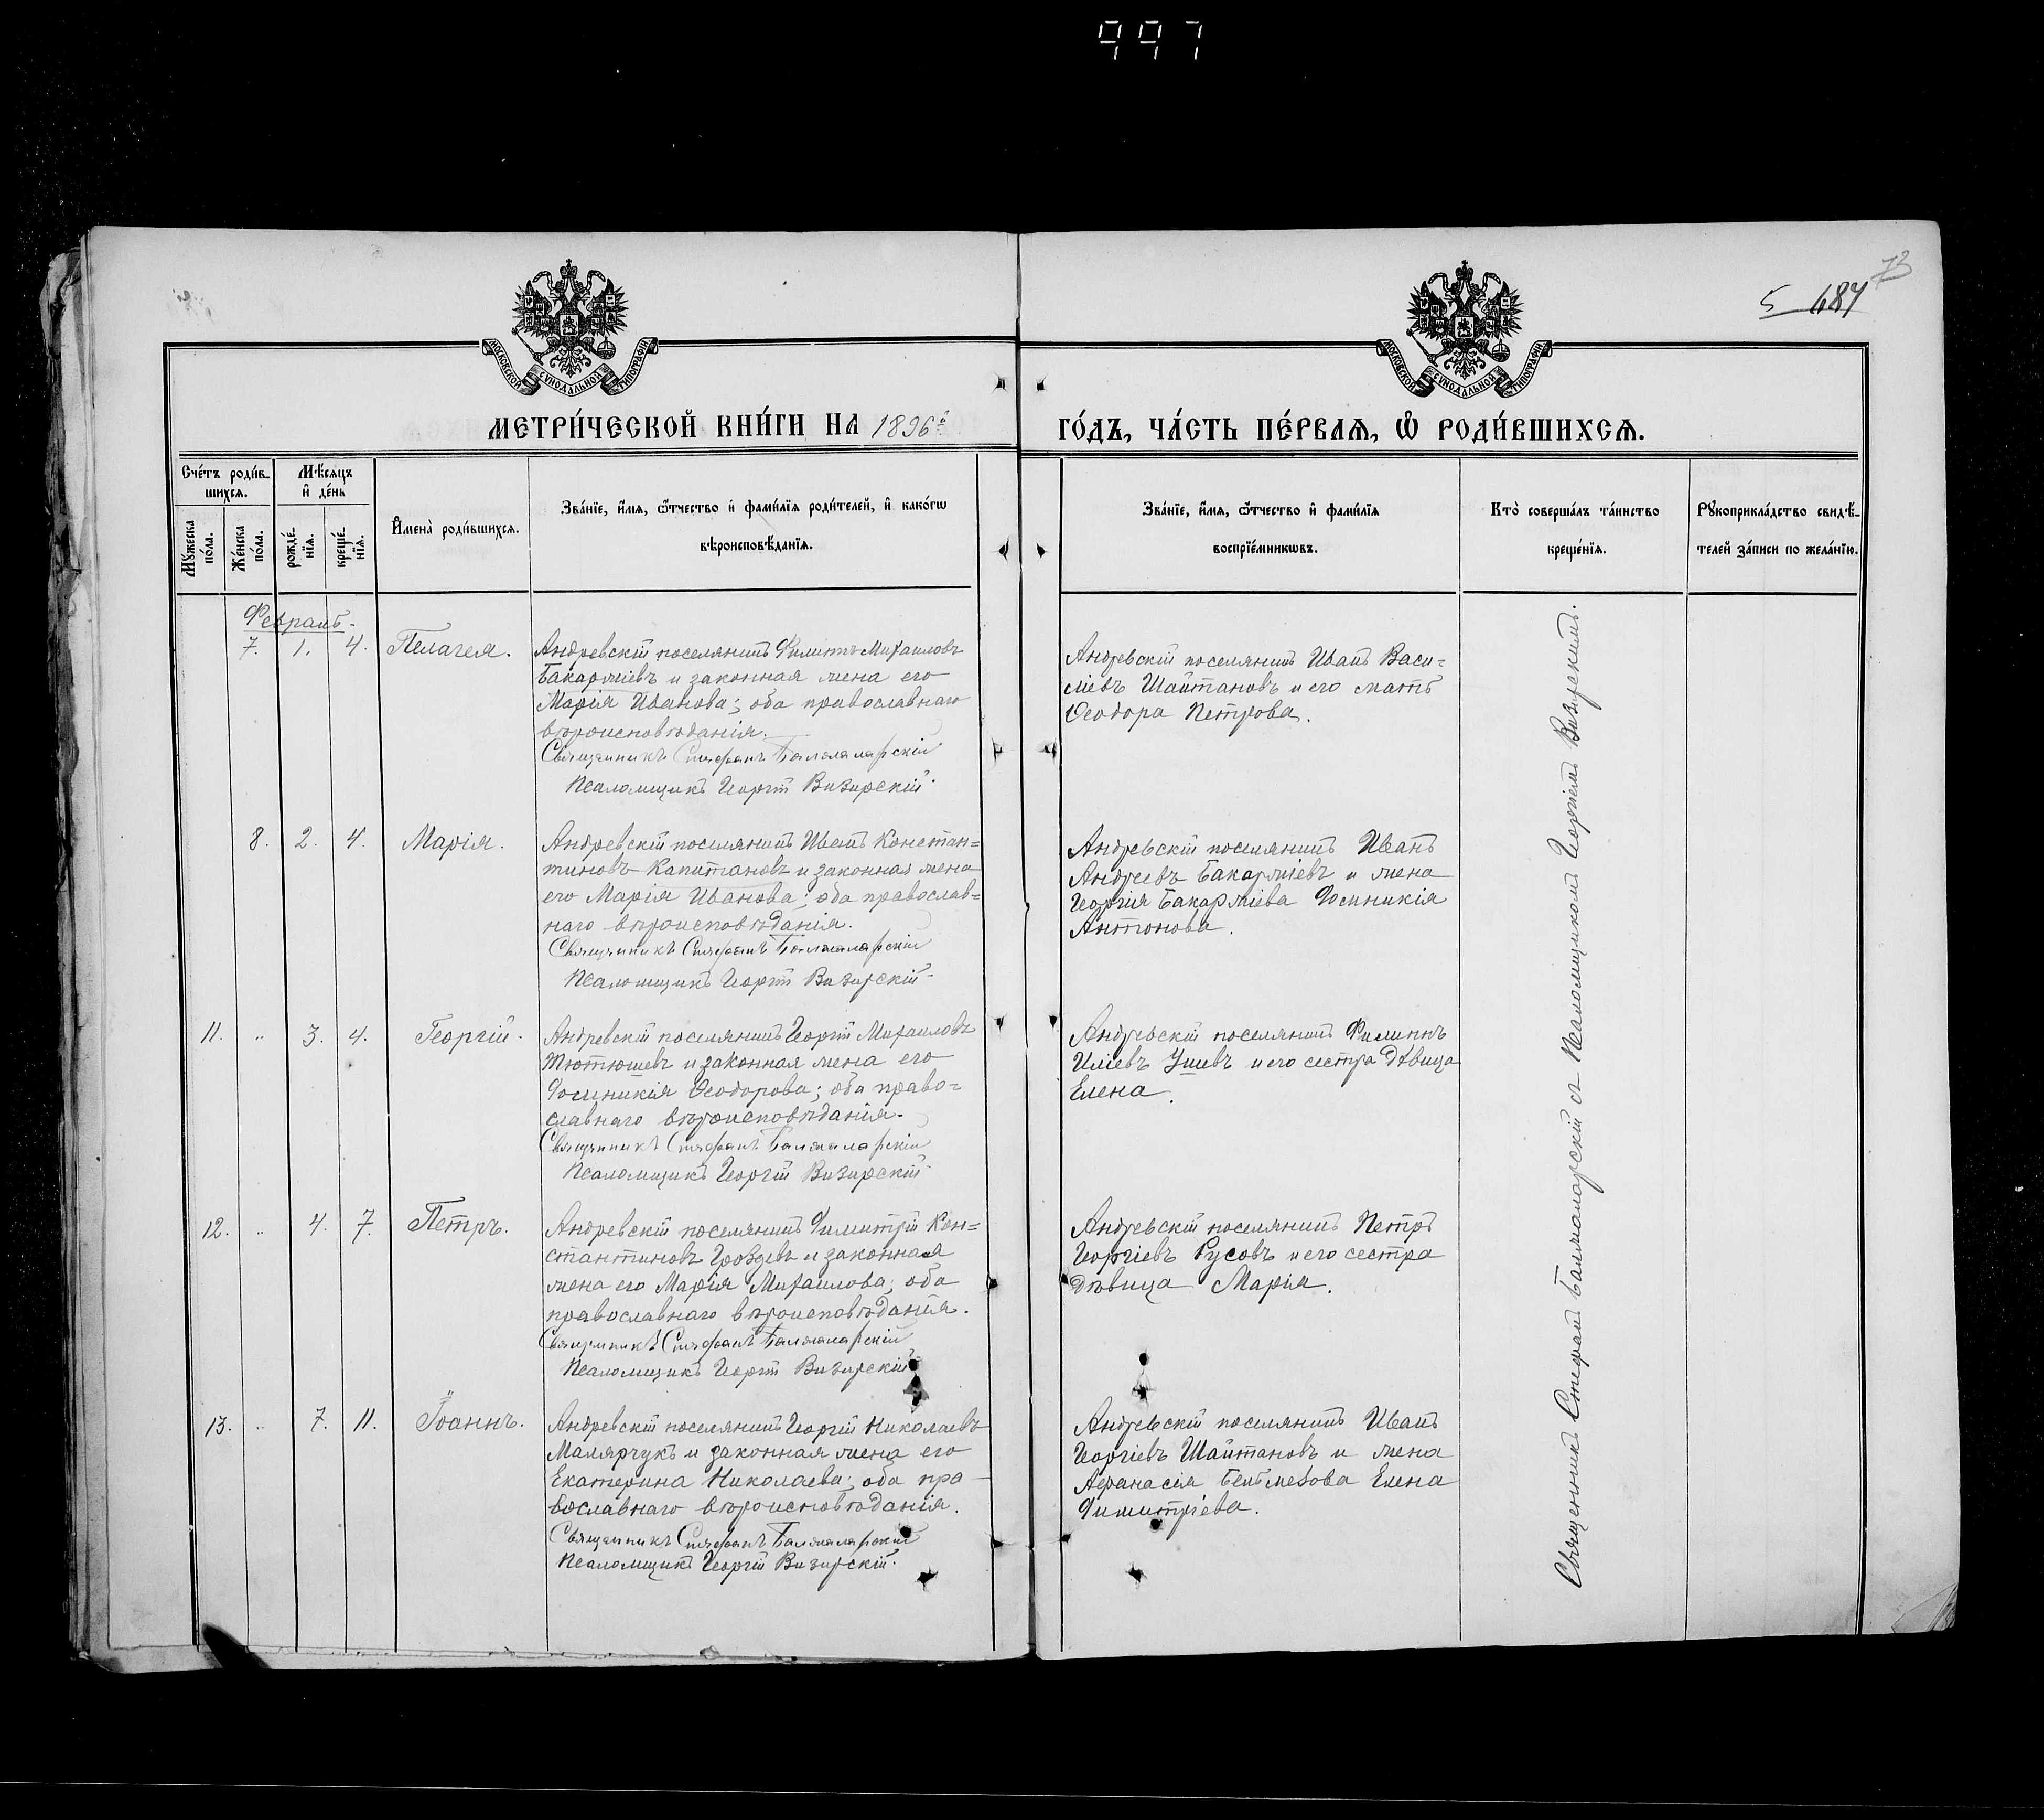 997
73
5 687
МОСКОВСКОЙ СѴНОДАЛЬНОЙ ТИПОГРАФІИ
МОСКОВСКОЙ СѴНОДАЛЬНОЙ ТИПОГРАФІИ
МЕТРИ́ЧЕСКОЙ КНИ́ГИ НА 1896й
ГО́ДЪ, ЧА́СТЬ ПЕ́РВАѦ, Ѽ РОДИ́ВШИХСѦ.
Сче́тъ роди́в-
шихсѧ.
Мѣ́сѧцъ
и҆ де́нь
Мꙋ́жеска по́ла.
Же́нска по́ла.
рожде́-нїѧ.
креще́-нїѧ.
И҆мена̀ роди́вшихсѧ.
Зва́нїе, и҆́мѧ, ѿ́тчество и҆ фами́лїѧ роди́телей, и҆ како́гѡ
вѣроисповѣ́данїѧ.
Зва́нїе, и҆́мѧ, ѿ́тчество и҆ фами́лїѧ
воспрїе́мникѡвъ.
Кто̀ соверша́лъ та́инство
креще́нїѧ.
Рꙋкоприкла́дство свидѣ́-
телей за́писи по жела́нїю.
Февраль.
7. 1. 4. Пелагея.
Андревскій поселянинъ Филиппъ Михаиловъ
Бакаржіевъ и законная жена его
Марія Иванова; оба православнаго
вѣроисповѣданія.
Священникъ Стефанъ Балжаларскій
Псаломщикъ Георгій Визирскій.
Андревскій поселянинъ Иванъ Васи=
ліевъ Шайтановъ и его мать
Ѳеодора Петрова.
8. 2. 4. Марія.
Андревскій поселянинъ Иванъ Констан=
тиновъ Капитановъ и законная жена
его Марія Иванова; оба православ=
наго вѣроисповѣданія.
Священникъ Стефанъ Балжаларскій
Псаломщикъ Георгій Визирскій.
Андревскій поселянинъ Иванъ
Андреевъ Бакаржіевъ и жена
Георгія Бакаржіева Досиникія
Антонова.
11. „ 3. 4. Георгій.
Андревскій поселянинъ Георгій Михаиловъ
Тютюшевъ и законная жена его
Досиникія Ѳеодорова; оба право=
славнаго вѣроисповѣданія.
Священникъ Стефанъ Балжаларскій
Псаломщикъ Георгій Визирскій
Андревскій поселянинъ Филиппъ
Иліевъ Ушевъ и его сестра дѣвица
Елена.
12. „ 4. 7. Петръ.
Андревскій поселянинъ Димитрій Кон=
стантиновъ Гроздевъ и законная
жена его Марія Михаилова; оба
православнаго вѣроисповѣданія.
Священникъ Стефанъ Балжаларскій
Псаломщикъ Георгій Визирскій
Андревскій поселянинъ Петръ
Георгіевъ Русовъ и его сестра
дѣвица Марія.
13. „ 7. 11. Іоаннъ.
Андревскій поселянинъ Георгій Николаевъ
Малярчукъ и законная жена его
Екатерина Николаева; оба пра-
вославнаго вѣроисповѣданія.
Священникъ Стефанъ Балжаларскій
Псаломщикъ Георгій Визирскій.
Андревскій поселянинъ Иванъ
Георгіевъ Шайтановъ и жена
Афанасія Бельмезова Елена
Димитріева.
Священникъ Стефанъ Балжаларскій съ Псаломщикомъ Георгіемъ Визирскимъ.